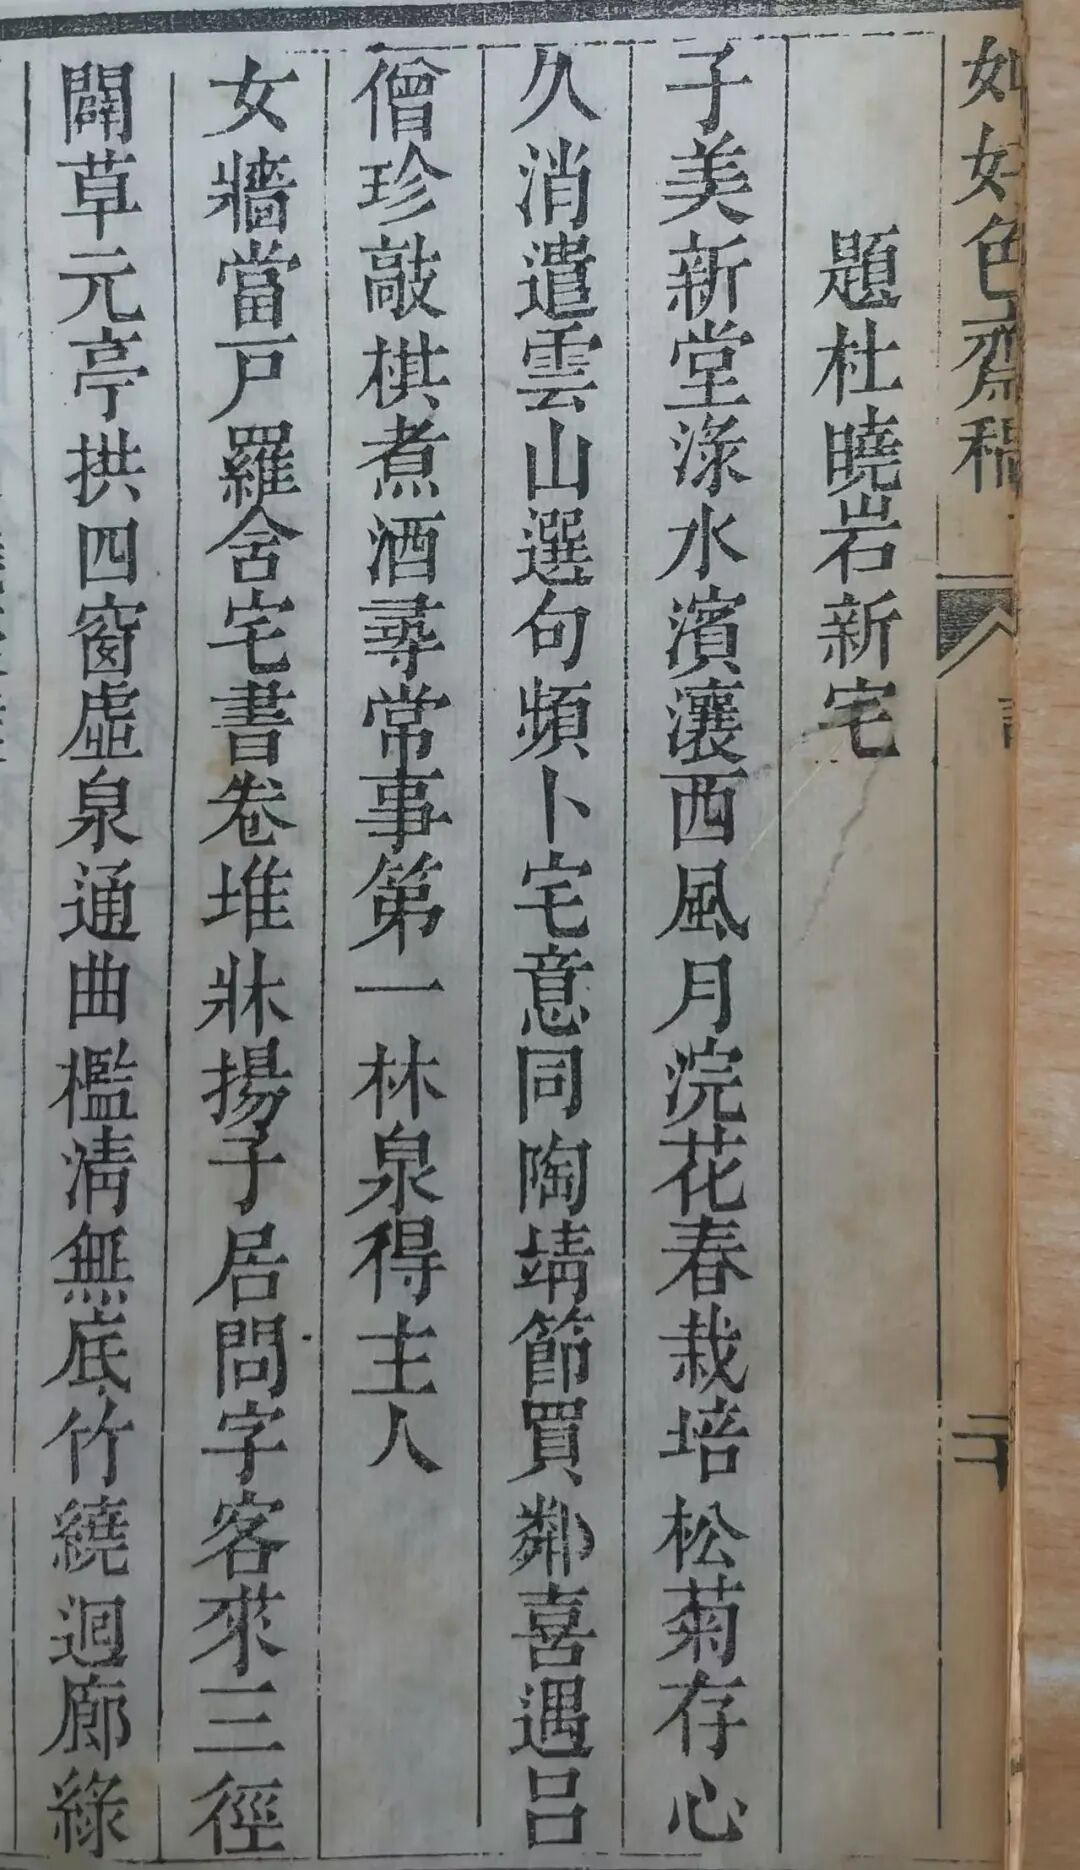 如好色齋稿
二十
題杜曉岩新宅
子美新堂淥水濱瀼西風月浣花春栽培松菊存心
久消遣雲山選句頻卜宅意同陶靖節買鄰喜遇呂
僧珍敲棋煮酒尋常事第一林泉得主人
女牆當戸羅舍宅書卷堆牀揚子居問字客來三徑
闢草元亭拱四窗虛泉通曲檻淸無底竹繞迴廊綠